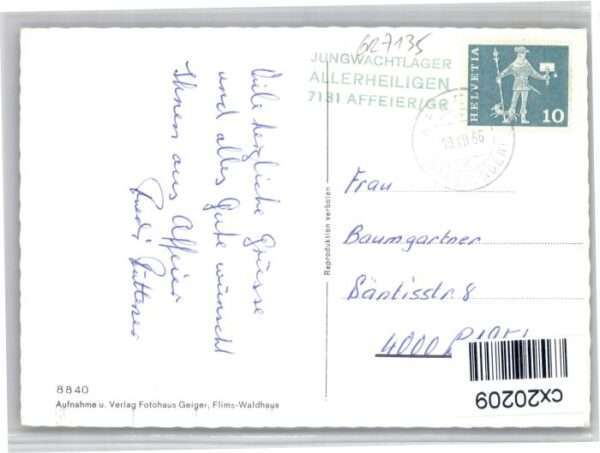 GR7135
JUNGWACHTLAGER
ALLERHEILIGEN
7131 AFFEIER/GR
HELVETIA
10
Viele herzliche Grüsse
und alles Gute wünscht
Ihnen aus Affeier
Ruedi
Frau
Baumgartner
Säntisstr. 8
4000
Reproduktion verboten
8840
Aufnahme u. Verlag Fotohaus Geiger, Flims-Waldhaus
cx20209